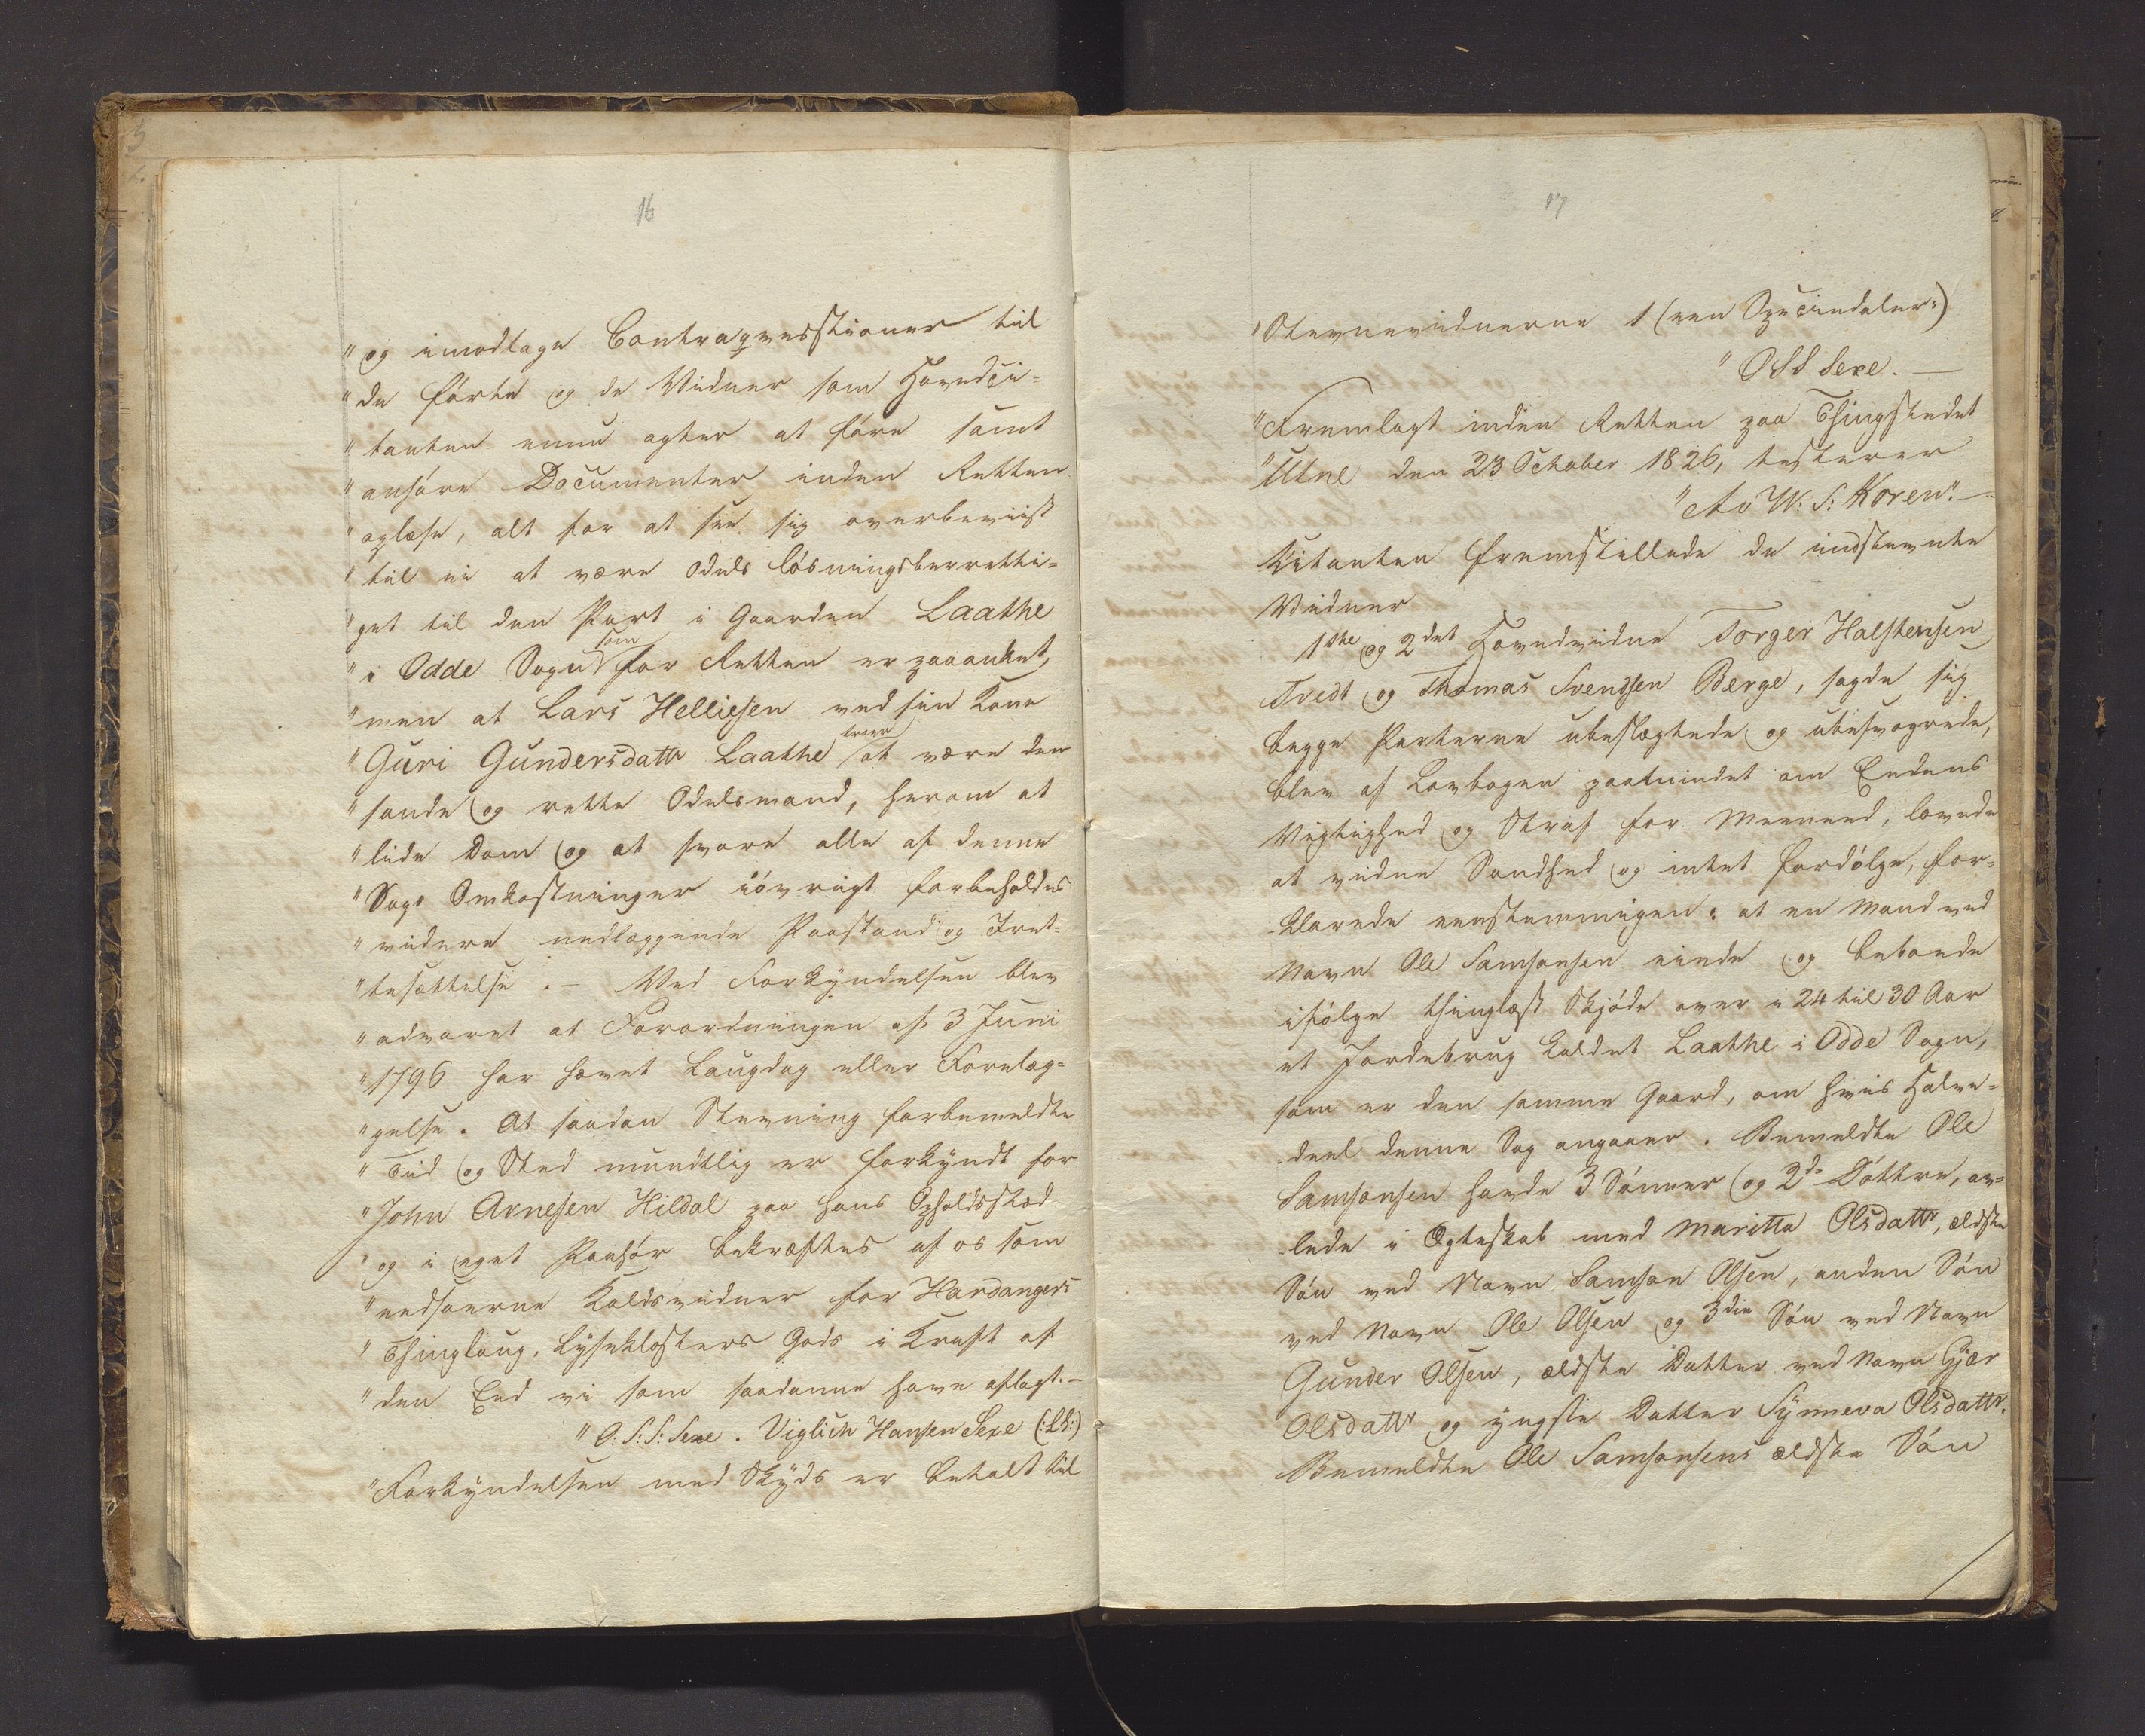 16
"og imodtage Contraqvesstioner til
"de førte og de Vidner som Hovedci-
"tanten ennu agter at føre samt
"anføre Documenter inden Retten
"oplæse, alt for at see sig overbeviist
"til ei at være Odels løsningsberretti-
"get til den Part i Gaarden Laathe
"i Odde Sogn som for Retten er paaanket,
"men at Lars Helliesen ved sin Kone
"Guri Gundersdattr Laathe troer at være den
"sande og rette Odelsmand, herom at
"lide Dom og at svare alle af denne
"Sags Omkostninger iøvrigt forbeholdes
"videre nedlæggende Paastand og Iret-
"tesættelse. – Ved Forkyndelsen blev
"advaret at Forordningen af 3 Juni
"1796 har hævet Laugdag eller Forelæg-
"gelse. At saadan Stevning forbemeldte
"Tid og Sted mundtlig er forkyndt for
"John Arnesen Hildal paa hans Opholdsstæd
"og i eget Paahør bekræftes af os som
"eedsoerne Kaldsvidner for Hardangers
"Thinglaug, Lyseklosters Gods i Kraft af
"den Eed vi som saadanne have aflagt. –
"O: S: S: Sexe. Viglich Hansen Sexe (:LS:)
"Forkyndelsen med Skyds er betalt til
17
"Stevnevidnerne 1 (een Speciedaler:)
"OSS Sexe. –
"Fremlagt inden Retten paa Thingstedet
"Utne den 23 October 1826, testerer
"Av W: S: Koren". –
Citanten fremstillede de indstevnte
Vidner
1ste og 2det Hovedvidne Torger Halstensen
Tvedt og Thomas Svendsen Berge, sagde sig
begge Parterne ubeslægtede og ubesvogrede,
blev af Lovbogen paamindet om Eedens
Vigtighed og Straf for Meeneed, lovede
at vidne Sandhed og intet fordølge, for-
-klarede eenstemmigen: at en Mand ved
Navn Ole Samsonsen eiede og beboede
ifølge thinglæst Skjøde over i 24 til 30 Aar
et Jordebrug kaldet Laathe i Odde Sogn,
som er den samme Gaard, om hvis Halve-
-deel denne Sag angaaer. Bemeldte Ole
Samsonsen havde 3 Sønner og 2de Døttre, av-
-lede i Ægteskab med Maritta Olsdattr, ældste
Søn ved Navn Samson Olsen, anden Søn
ved Navn Ole Olsen og 3die Søn ved Navn
Gunder Olsen, ældste Datter ved Navn Gjær
Olsdattr og yngste Datter Synneva Olsdattr.
Bemeldte Ole Samsonsens ældste Søn